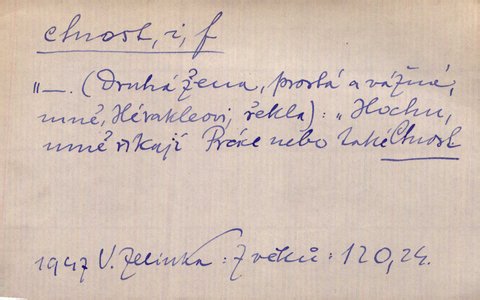 ctnost, i, f
"—. (Druhá žena, prostá a vážné,
mně, Hérakleovi, řekla): „Hochu,
mně říkají Práce nebo také Ctnost
1947 V. Zelinka: Z věků: 120, 24.